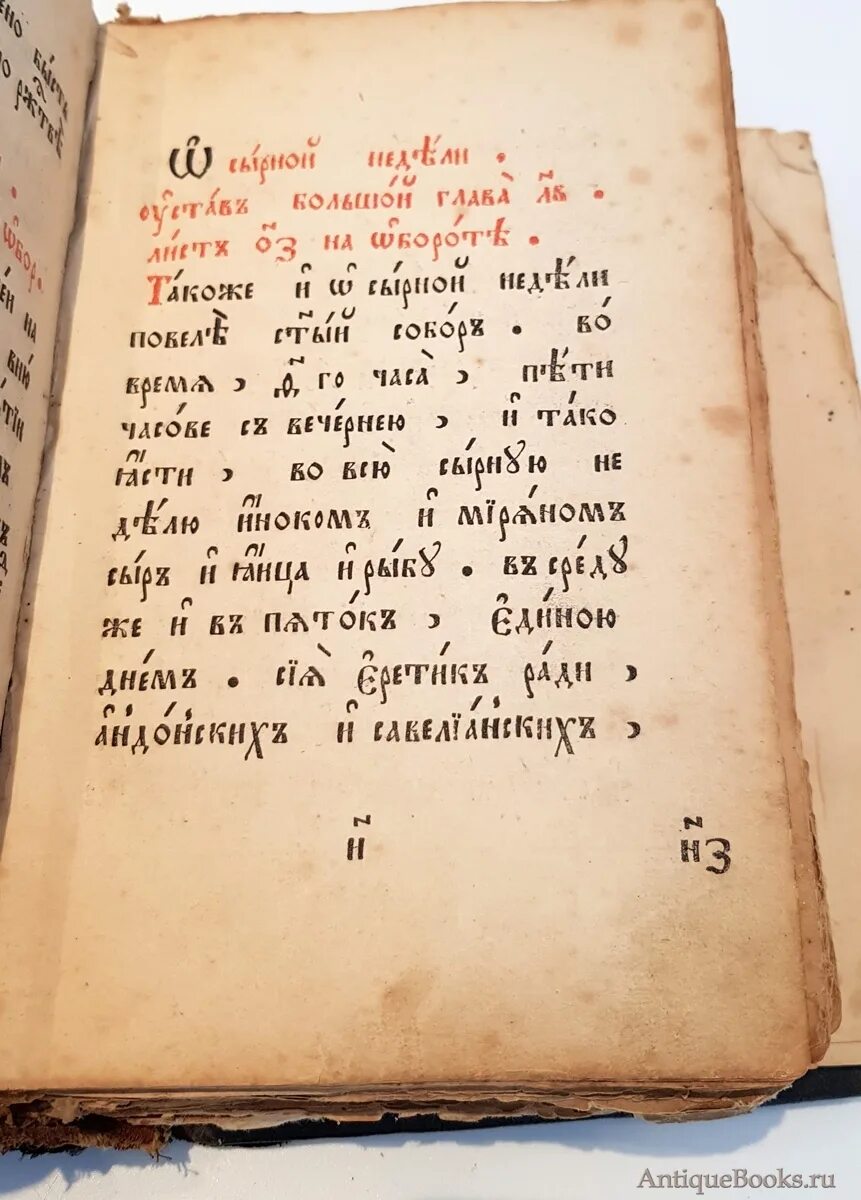 ено бы́сть
ржтвѣ̀
ѡ҆бор.
ен на
вню̀
тїи
Ѡ҆ сы́рной недѣ́ли .
оу҆ста́въ большо́й глава̀ л҃в .
ли́стъ о҃з на ѡ҆боро́тѣ .
Та́коже и҆ ѡ҆ сы́рной недѣ́ли
повелѣ̀ ст҃ы́й собо́ръ . во́
времѧ , го часа̀ , пѣ́ти
часо́ве съ вече́рнею , и҆ та́ко
ꙗ҆́сти , во всю̀ сы́рнꙋю не
дѣ́лю и҆́нокомъ и҆ мїрѧ́номъ
сы́ръ и҆ ꙗ҆́ица и҆ ры́бꙋ . въ сре́дꙋ
же и҆ въ пѧто́къ , є҆ди́ною
дне́мъ . сїѧ̀ є҆рети́къ ра́ди ,
а҆ндо́нскихъ и҆ савелїа́нскихъ ,
н҃ н҃з
AntiqueBooks.ru